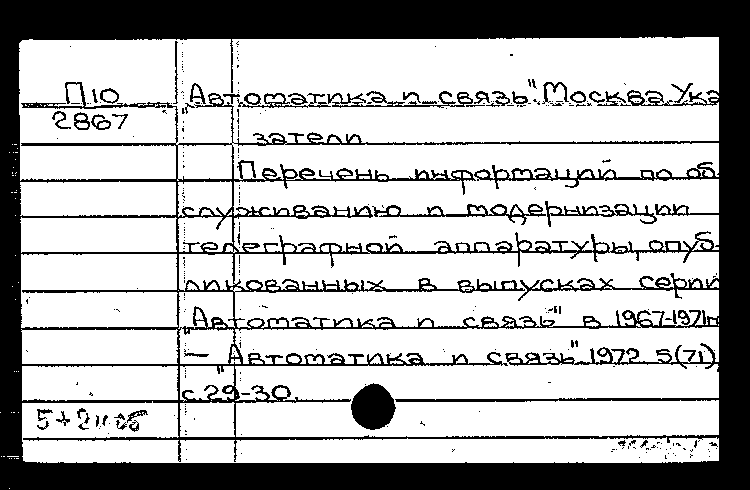 П10
2867
„Автоматика и связь". Москва. Ука
затели
Перечень информаций по об-
служиванию и модернизации
телеграфной аппаратуры, опуб-
ликованных в выпусках серии
„Автоматика и связь" в 1967-1971гг
— „Автоматика и связь" 1972 5(71),
с.29-30.